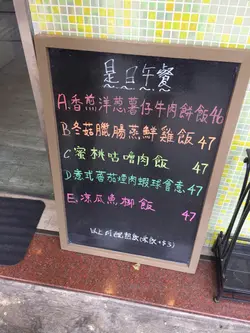 是日午餐
A.香煎洋葱薯仔牛肉餅飯46
B冬菇臘腸蒸鮮雞飯47
C蜜桃咕嚕肉飯 47
D意式蕃茄煙肉蝦球會意47
E.涼瓜魚柳飯 47
以上列配熱飲(凍飲+$3)